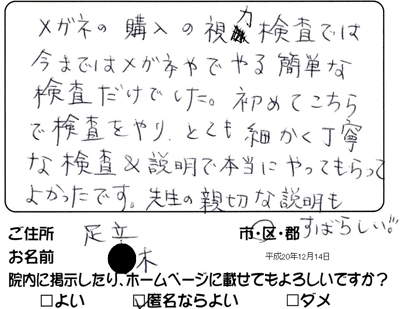 メガネの購入の視力検査では
今まではメガネやでやる簡単な
検査だけでした。初めてこちら
で検査をやり、とても細かく丁寧
な検査&説明で本当にやってもらって
よかったです。先生の親切な説明も
すばらしい!!
ご住所 足立 市・区・郡
お名前 木 平成20年12月14日
院内に掲示したり、ホームページに載せてもよろしいですか?
□よい ☑匿名ならよい □ダメ